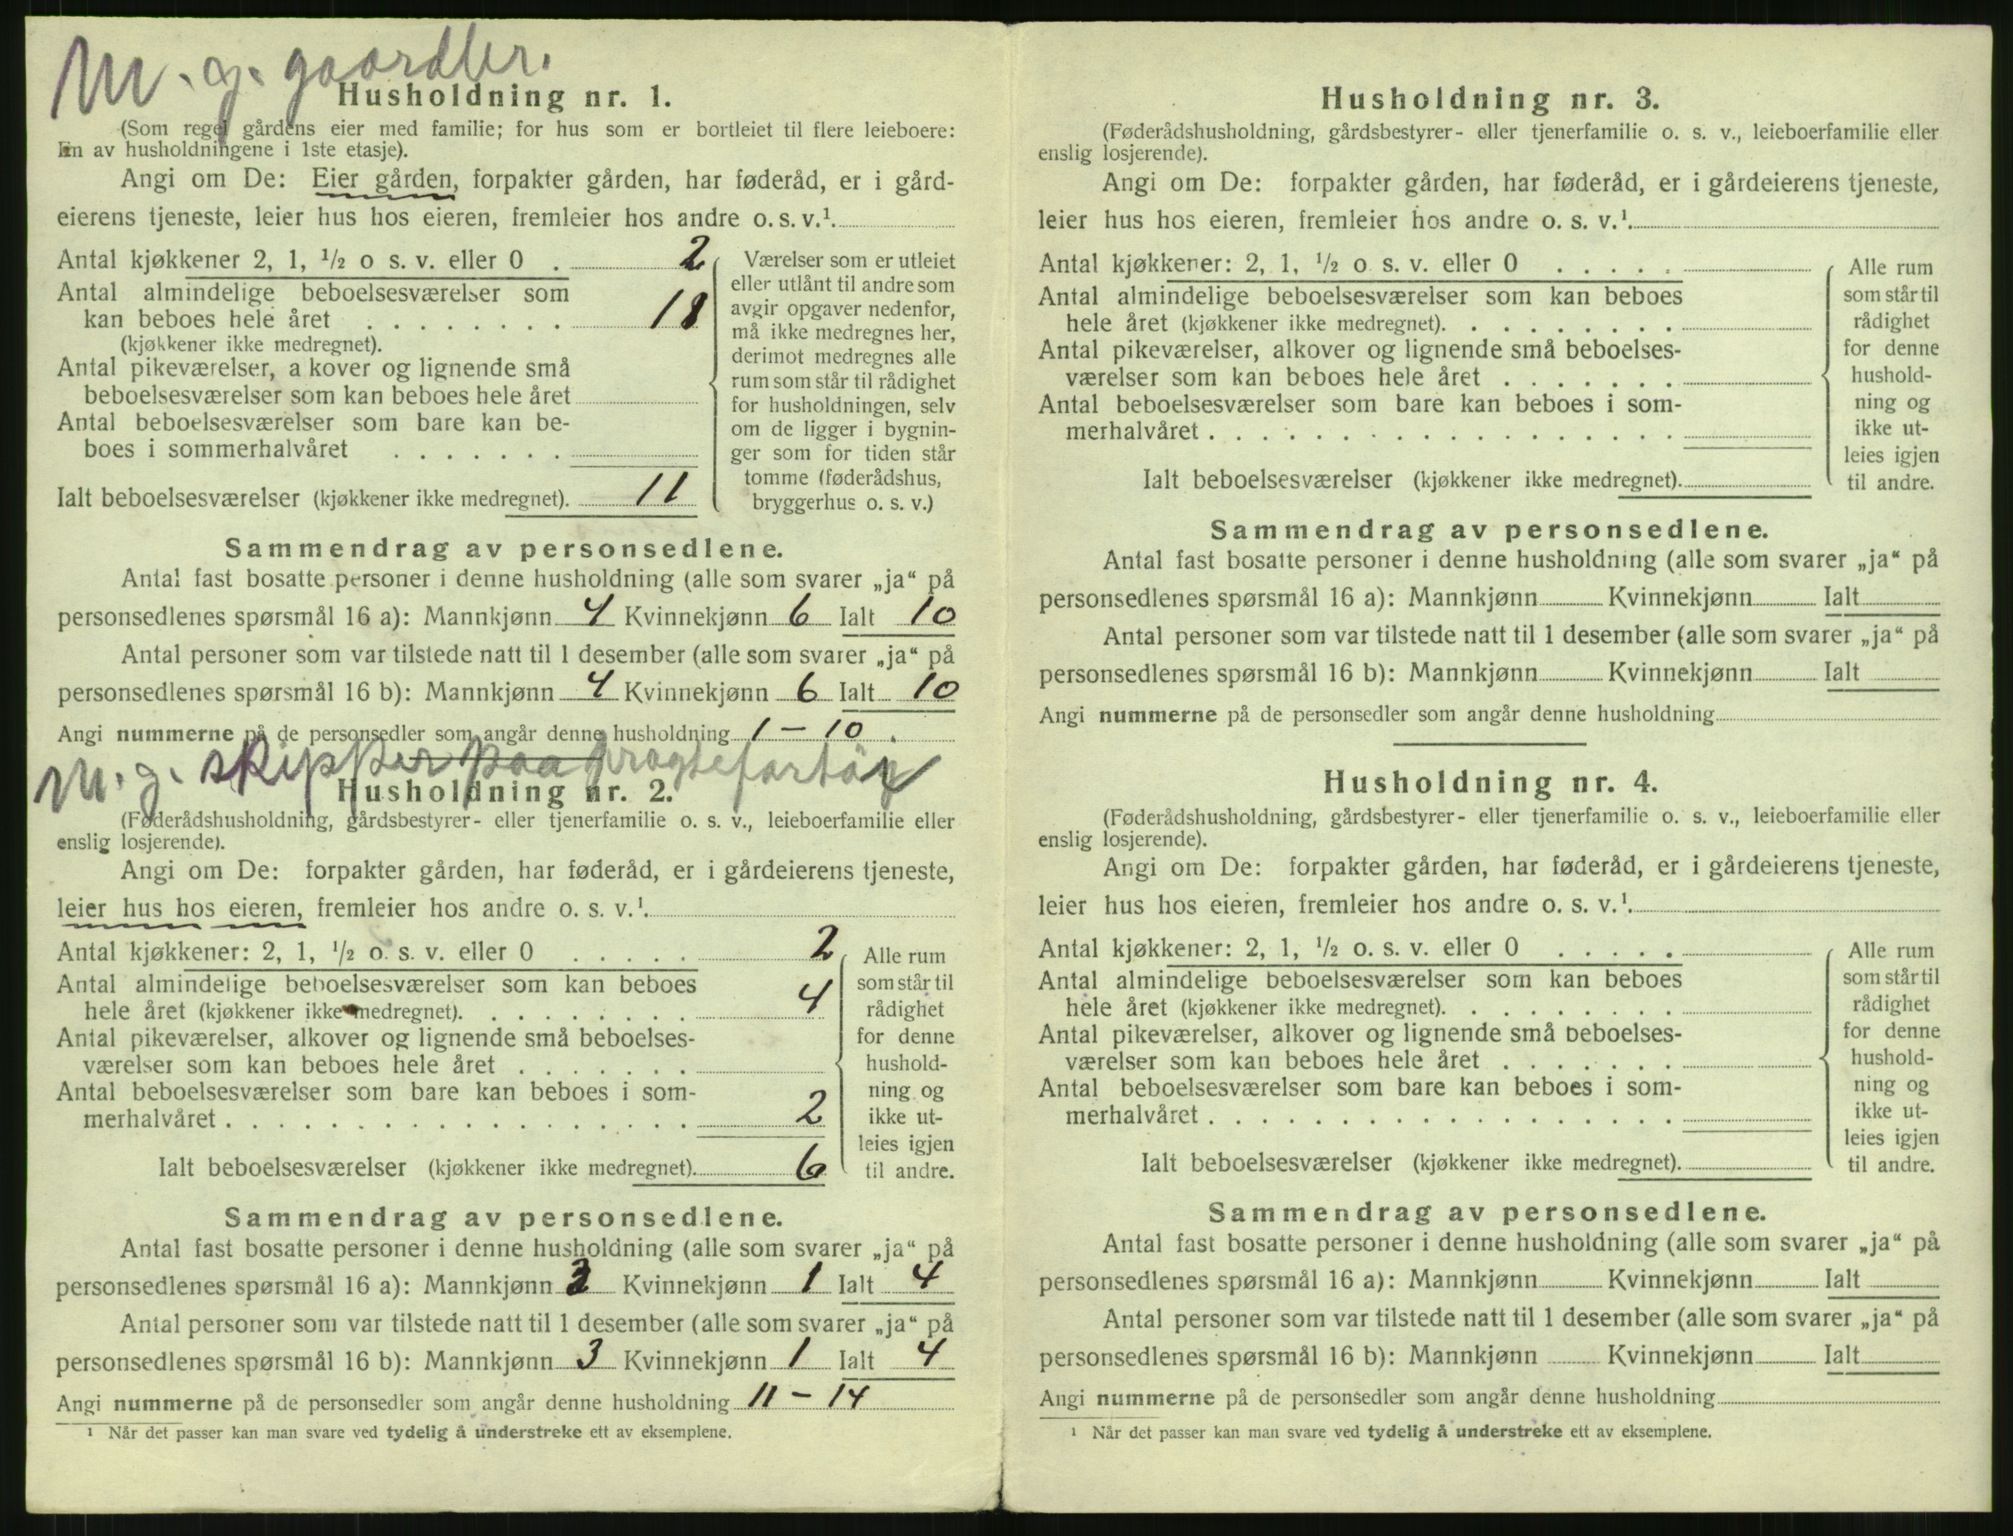 M. g. gaardbr.
Husholdning nr. 1.
(Som regel gårdens eier med familie; for hus som er bortleiet til flere leieboere:
En av husholdningene i 1ste etasje).
Angi om De: Eier gården, forpakter gården, har føderåd, er i gård-
eierens tjeneste, leier hus hos eieren, fremleier hos andre o. s. v.¹.
Antal kjøkkener 2, 1, ½ o s. v. eller 0 . 2
Antal almindelige beboelsesværelser som
kan beboes hele året . . . . . . . . 11
(kjøkkener ikke medregnet).
Antal pikeværelser, a kover og lignende små
beboelsesværelser som kan beboes hele året
Antal beboelsesværelser som bare kan be-
boes i sommerhalvåret . . . . . . .
Ialt beboelsesværelser (kjøkkener ikke medregnet). 11
Værelser som er utleiet
eller utlånt til andre som
avgir opgaver nedenfor,
må ikke medregnes her,
derimot medregnes alle
rum som står til rådighet
for husholdningen, selv
om de ligger i bygnin-
ger som for tiden står
tomme (føderådshus,
bryggerhus o. s. v.)
Sammendrag av personsedlene.
Antal fast bosatte personer i denne husholdning (alle som svarer „ja“ på
personsedlenes spørsmål 16 a): Mannkjønn 4 Kvinnekjønn 6 Ialt 10
Antal personer som var tilstede natt til 1 desember (alle som svarer „ja“ på
personsedlenes spørsmål 16 b): Mannkjønn 4 Kvinnekjønn 6 Ialt 10
Angi nummerne på de personsedler som angår denne husholdning 1 – 10.
M. g. skipper paa fragtefartøi
Husholdning nr. 2.
(Føderådshusholdning, gårdsbestyrer- eller tjenerfamilie o. s. v., leieboerfamilie eller
enslig losjerende).
Angi om De: forpakter gården, har føderåd, er i gårdeierens tjeneste,
leier hus hos eieren, fremleier hos andre o. s. v.¹.
Antal kjøkkener: 2, 1, ½ o. s. v. eller 0 . . . . . 2
Antal almindelige beboelsesværelser som kan beboes
hele året (kjøkkener ikke medregnet). . . . . . . . . 4
Antal pikeværelser, alkover og lignende små beboelses-
værelser som kan beboes hele året . . . . . . .
Antal beboelsesværelser som bare kan beboes i som-
merhalvåret . . . . . . . . . . . . . . . . . . 2
Ialt beboelsesværelser (kjøkkener ikke medregnet). 6
Alle rum
som står til
rådighet
for denne
hushold-
ning og
ikke ut-
leies igjen
til andre.
Sammendrag av personsedlene.
Antal fast bosatte personer i denne husholdning (alle som svarer „ja“ på
personsedlenes spørsmål 16 a): Mannkjønn 3 Kvinnekjønn 1 Ialt 4
Antal personer som var tilstede natt til 1 desember (alle som svarer „ja“ på
personsedlenes spørsmål 16 b): Mannkjønn 3 Kvinnekjønn 1 Ialt 4
Angi nummerne på de personsedler som angår denne husholdning 11 – 14
¹ Når det passer kan man svare ved tydelig å understreke ett av eksemplene.
Husholdning nr. 3.
(Føderådshusholdning, gårdsbestyrer- eller tjenerfamilie o. s. v., leieboerfamilie eller
enslig losjerende).
Angi om De: forpakter gården, har føderåd, er i gårdeierens tjeneste,
leier hus hos eieren, fremleier hos andre o. s. v.¹.
Antal kjøkkener: 2, 1, ½ o. s. v. eller 0 . . . . .
Antal almindelige beboelsesværelser som kan beboes
hele året (kjøkkener ikke medregnet). . . . . . . . .
Antal pikeværelser, alkover og lignende små beboelses-
værelser som kan beboes hele året . . . . . . .
Antal beboelsesværelser som bare kan beboes i som-
merhalvåret . . . . . . . . . . . . . . . . . .
Ialt beboelsesværelser (kjøkkener ikke medregnet).
Alle rum
som står til
rådighet
for denne
hushold-
ning og
ikke ut-
leies igjen
til andre.
Sammendrag av personsedlene.
Antal fast bosatte personer i denne husholdning (alle som svarer „ja“ på
personsedlenes spørsmål 16 a): Mannkjønn Kvinnekjønn Ialt
Antal personer som var tilstede natt til 1 desember (alle som svarer „ja“ på
personsedlenes spørsmål 16 b): Mannkjønn Kvinnekjønn Ialt
Angi nummerne på de personsedler som angår denne husholdning
Husholdning nr. 4.
(Føderådshusholdning, gårdsbestyrer- eller tjenerfamilie o. s. v., leieboerfamilie eller
enslig losjerende).
Angi om De: forpakter gården, har føderåd, er i gårdeierens tjeneste,
leier hus hos eieren, fremleier hos andre o. s. v.¹.
Antal kjøkkener: 2, 1, ½ o. s. v. eller 0 . . . . .
Antal almindelige beboelsesværelser som kan beboes
hele året (kjøkkener ikke medregnet). . . . . . . . .
Antal pikeværelser, alkover og lignende små beboelses-
værelser som kan beboes hele året . . . . . . .
Antal beboelsesværelser som bare kan beboes i som-
merhalvåret . . . . . . . . . . . . . . . . . .
Ialt beboelsesværelser (kjøkkener ikke medregnet).
Alle rum
som står til
rådighet
for denne
hushold-
ning og
ikke ut-
leies igjen
til andre.
Sammendrag av personsedlene.
Antal fast bosatte personer i denne husholdning (alle som svarer „ja“ på
personsedlenes spørsmål 16 a): Mannkjønn Kvinnekjønn Ialt
Antal personer som var tilstede natt til 1 desember (alle som svarer „ja“ på
personsedlenes spørsmål 16 b): Mannkjønn Kvinnekjønn Ialt
Angi nummerne på de personsedler som angår denne husholdning
¹ Når det passer kan man svare ved tydelig å understreke ett av eksemplene.